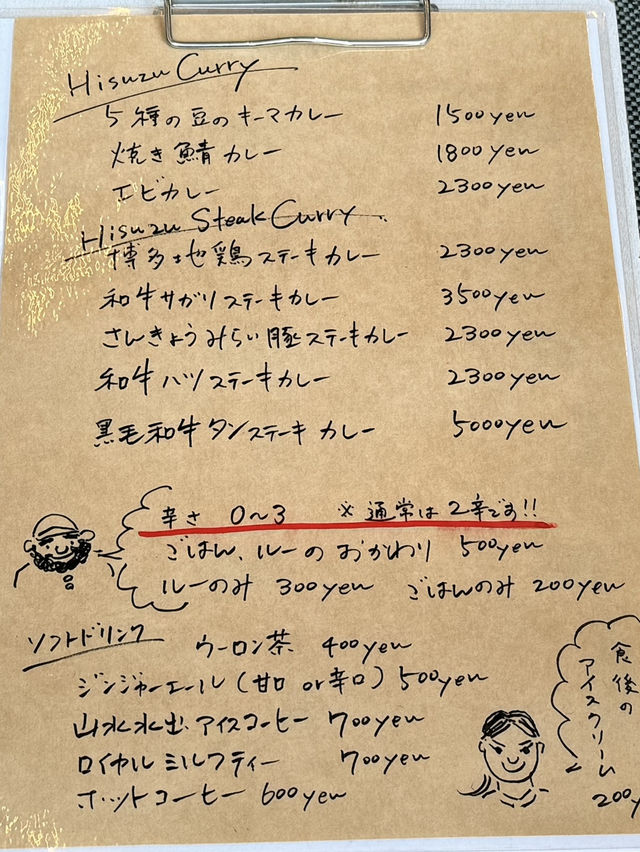 Hisuzu Curry
5種の豆のキーマカレー 1500yen
焼き鯖カレー 1800yen
エビカレー 2300yen
Hisuzu Steak Curry
博多地鶏ステーキカレー 2300yen
和牛サガリステーキカレー 3500yen
さんきょうみらい豚ステーキカレー 2300yen
和牛ハツステーキカレー 2300yen
黒毛和牛タンステーキカレー 5000yen
辛さ 0~3 ※通常は2辛です!!
ごはん、ルーのおかわり 500yen
ルーのみ 300yen ごはんのみ 200yen
ソフトドリンク
ウーロン茶 400yen
ジンジャーエール(甘口 or 辛口) 500yen
山水水出アイスコーヒー 700yen
ロイヤルミルクティー 700yen
ホットコーヒー 600yen
食後の
アイスクリーム
200y